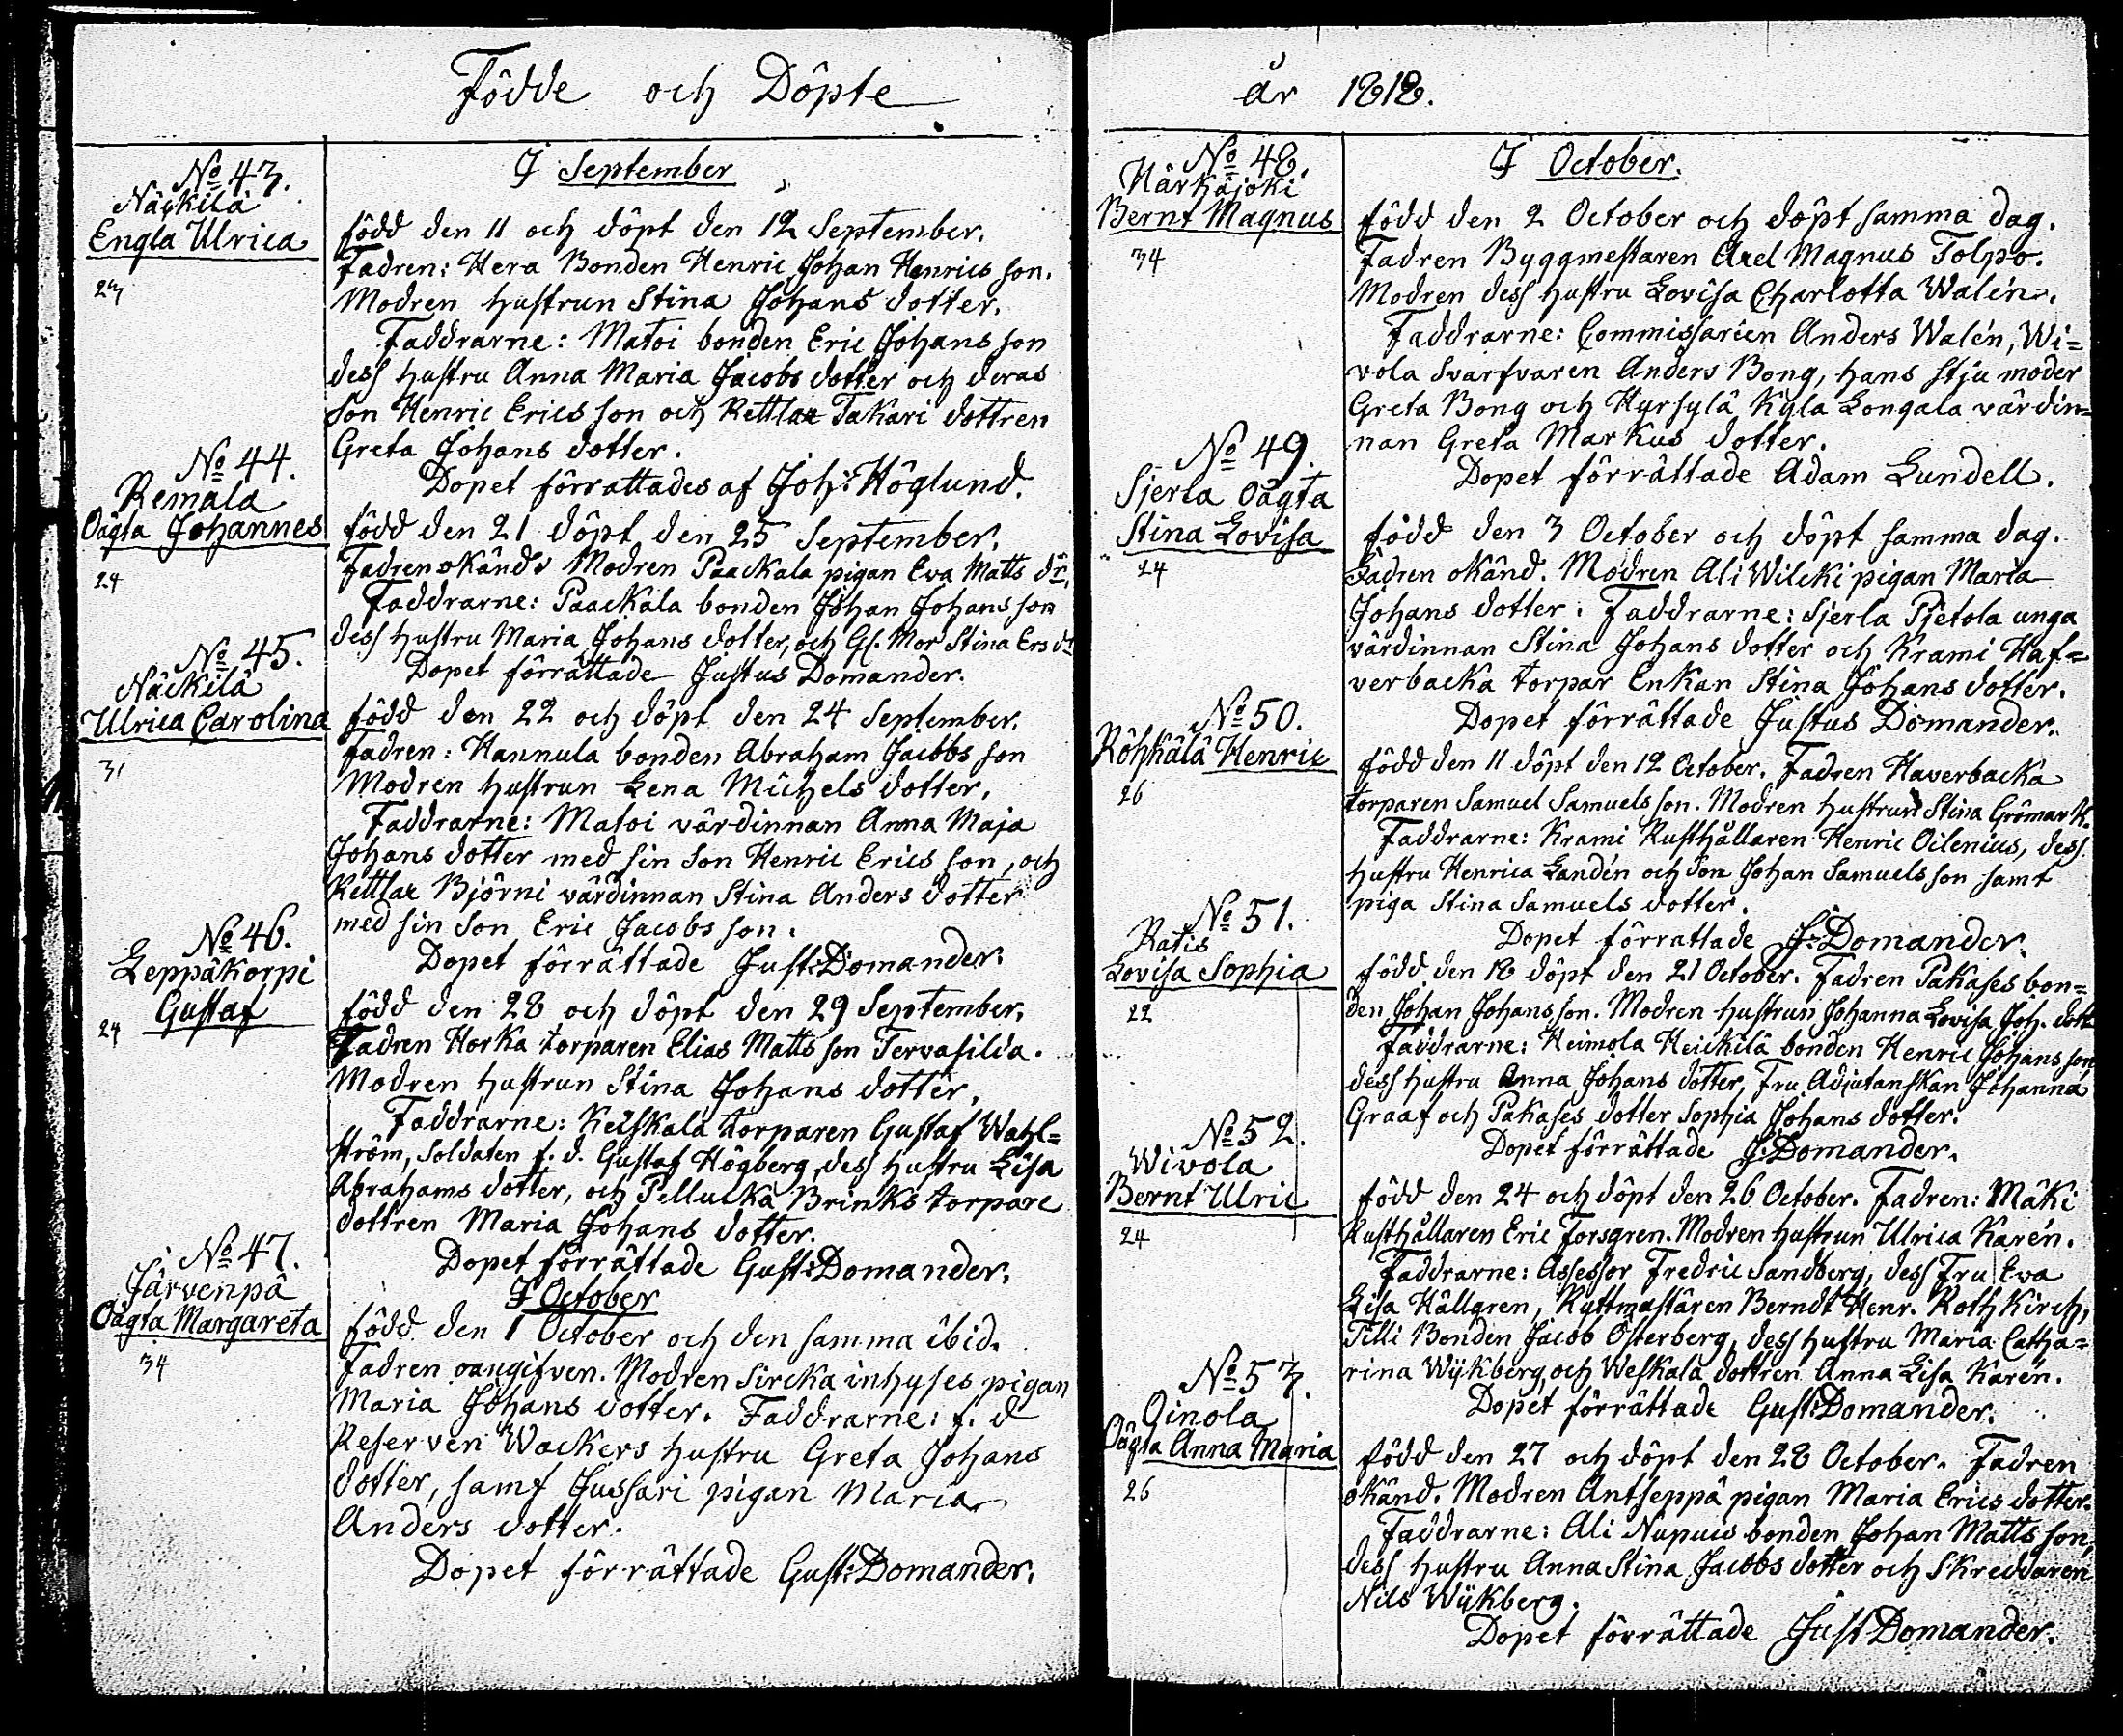 Födde och Döpte
No 43.
Näckilä
Engla Ulrica
27
I September
född den 11 och döpt den 12 September.
Fadren: Hera Bonden Henric Johan Henrics son.
Modren hustrun Stina Johans dotter.
Faddrarne: Matoi bonden Eric Johans son
dess hustru Anna Maria Jacobs dotter och deras
son Henric Erics son och Kettlax Takari dottren
Greta Johans dotter.
Dopet förrattades af Joh: Höglund.
No 44.
Remala
Oägta Johannes
24
född den 21 döpt den 25 September.
Fadren okänd. Modren Paackala pigan Eva Matts dr.
Faddrarne: Paackala bonden Johan Johans son
dess hustru Maria Johans dotter, och Gl. Mor Stina Ers dr
Dopet förrättade Justus Domander.
No 45.
Näckilä
Ulrica Carolina
31
född den 22 och döpt den 24 September.
Fadren: Hannula bonden Abraham Jacobs son
Modren hustrun Lena Michels dotter.
Faddrarne: Matoi värdinnan Anna Maja
Johans dotter med sin son Henric Erics son, och
Kettlax Björni värdinnan Stina Anders dotter
med sin son Eric Jacobs son.
Dopet förrättade Just: Domander.
No 46.
Leppäkorpi
Gustaf
24
född den 28 och döpt den 29 September.
Fadren Horka torparen Elias Matts son Tervasilda.
Modren hustrun Stina Johans dotter.
Faddrarne: Keiskala torparen Gustaf Wahl=
ström, soldaten f. d. Gustaf Högberg, dess hustru Lisa
Abrahams dotter, och Pellucka Brinks torpare
dottren Maria Johans dotter.
Dopet förrättade Gust: Domander.
No 47.
Järvenpä
Oägta Margareta
34
I October
född den 1 October och den samma ibid.
Fadren oangifven. Modren Sircka inhyses pigan
Maria Johans dotter. Faddrarne: f. d
Reserven Wackers hustru Greta Johans
dotter, samt Jussari pigan Maria
Anders dotter.
Dopet förrättade Gust: Domander.
år 1818.
No 48.
Härkäjoki
Bernt Magnus
34
I October.
född den 2 October och döpt samma dag.
Fadren Byggmestaren Axel Magnus Tolpo.
Modren dess hustru Lovisa Charlotta Walén.
Faddrarne: Commissarien Anders Walén, Wi=
vola Svarfvaren Anders Bong, hans stju moder
Greta Bong och Hyrsylä Kyla Longala värdin=
nan Greta Markus dotter.
Dopet förrättade Adam Lundell.
No 49.
Sjerla Oägta
Stina Lovisa
24
född den 3 October och döpt samma dag.
Fadren okänd. Modren Ali Wilcki pigan Maria
Johans dotter. Faddrarne: Sjerla Pjetola unga
värdinnan Stina Johans dotter och Krami Haf=
verbacka torpar Enkan Stina Johans dotter.
Dopet förrättade Justus Domander.
No 50.
Röhkälä Henric
26
född den 11 döpt den 12 October. Fadren Haverbacka
torparen Samuel Samuels son. Modren hustrun Stina Grömark.
Faddrarne: Krami Rusthållaren Henric Oilenius, dess
hustru Henrica Landén och son Johan Samuels son samt
piga Stina Samuels dotter.
Dopet förrattade J: Domander.
No 51.
Ratis
Lovisa Sophia
22
född den 18 döpt den 21 October. Fadren Pakases bon=
den Johan Johans son. Modren hustrun Johanna Lovisa Joh. dott
Faddrarne: Heimola Heickilä bonden Henric Johans son
dess hustru Anna Johans dotter, Fru Adjutanskan Johanna
Graaf och Pakases dotter Sophia Johans dotter.
Dopet förrättade J: Domander.
No 52.
Wivola
Bernt Ulric
24
född den 24 och döpt den 26 October. Fadren: Mäki
Rusthållaren Eric Forsgren. Modren hustrun Ulrica Karén.
Faddrarne: Assessor Fredric Sandberg, dess Fru Eva
Lisa Hällgren, Ryttmästaren Berndt Henr. Rothkirch,
Tilli Bonden Jacob Österberg, dess hustru Maria Catha=
rina Wÿkberg och Weskala dottren Anna Lisa Karén.
Dopet förrättade Gust: Domander.
No 53.
Oinola
Oägta Anna Maria
26
född den 27 och döpt den 28 October. Fadren
okänd. Modren Antseppä pigan Maria Erics dotter.
Faddrarne: Ali Nupuis bonden Johan Matts son,
dess hustru Anna Stina Jacobs dotter och Skreddaren
Nils Wÿkberg.
Dopet förrättade Just Domander.